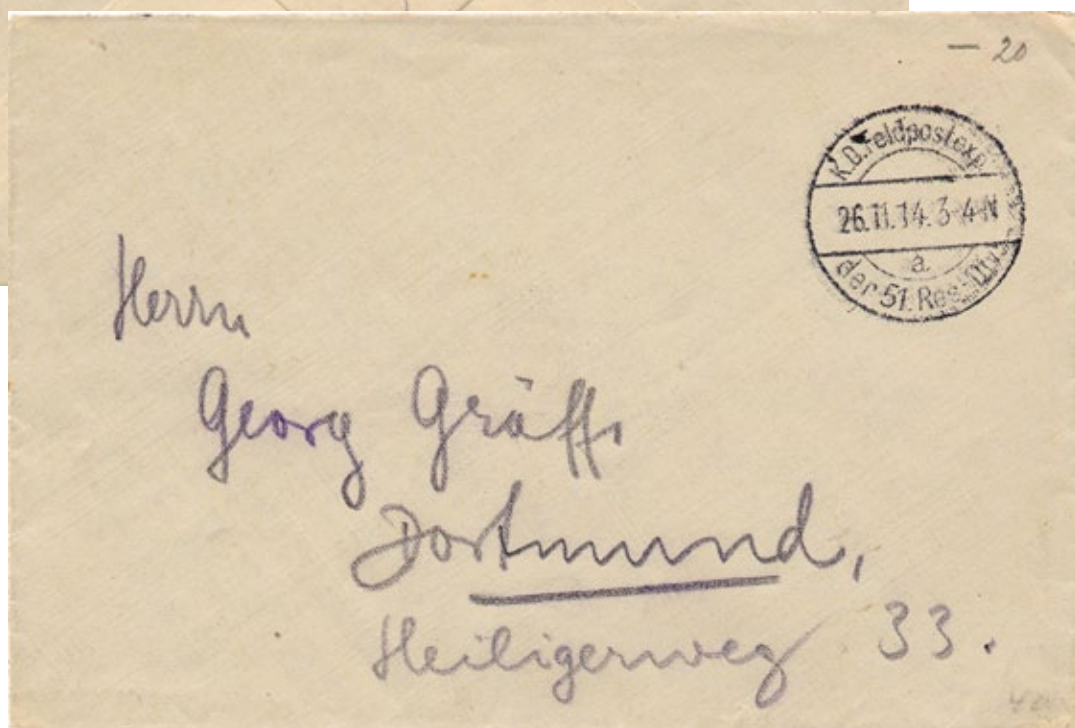 — 20
K.D. Feldpostexp.
26.11.14. 3-4 N
a.
der 51. Res. Div.
Herrn
Georg Gräff
Dortmund,
Heiligerweg 33.